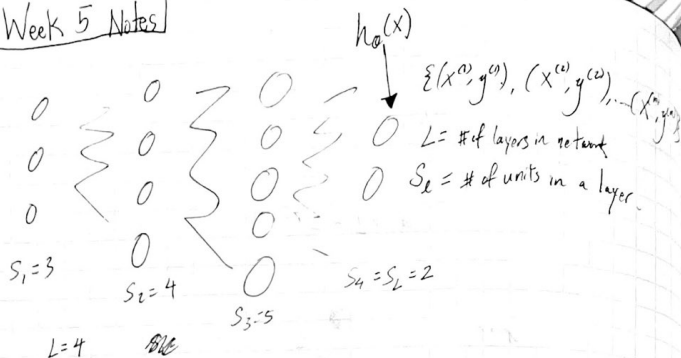 Week 5 Notes
hΘ(x)
{(x⁽¹⁾, y⁽¹⁾), (x⁽²⁾, y⁽²⁾), ... (x⁽ᵐ⁾, y⁽ᵐ⁾)}
L = # of layers in network
Sℓ = # of units in a layer.
S₁=3
S₂=4
S₃=5
S₄ = S_L = 2
L=4